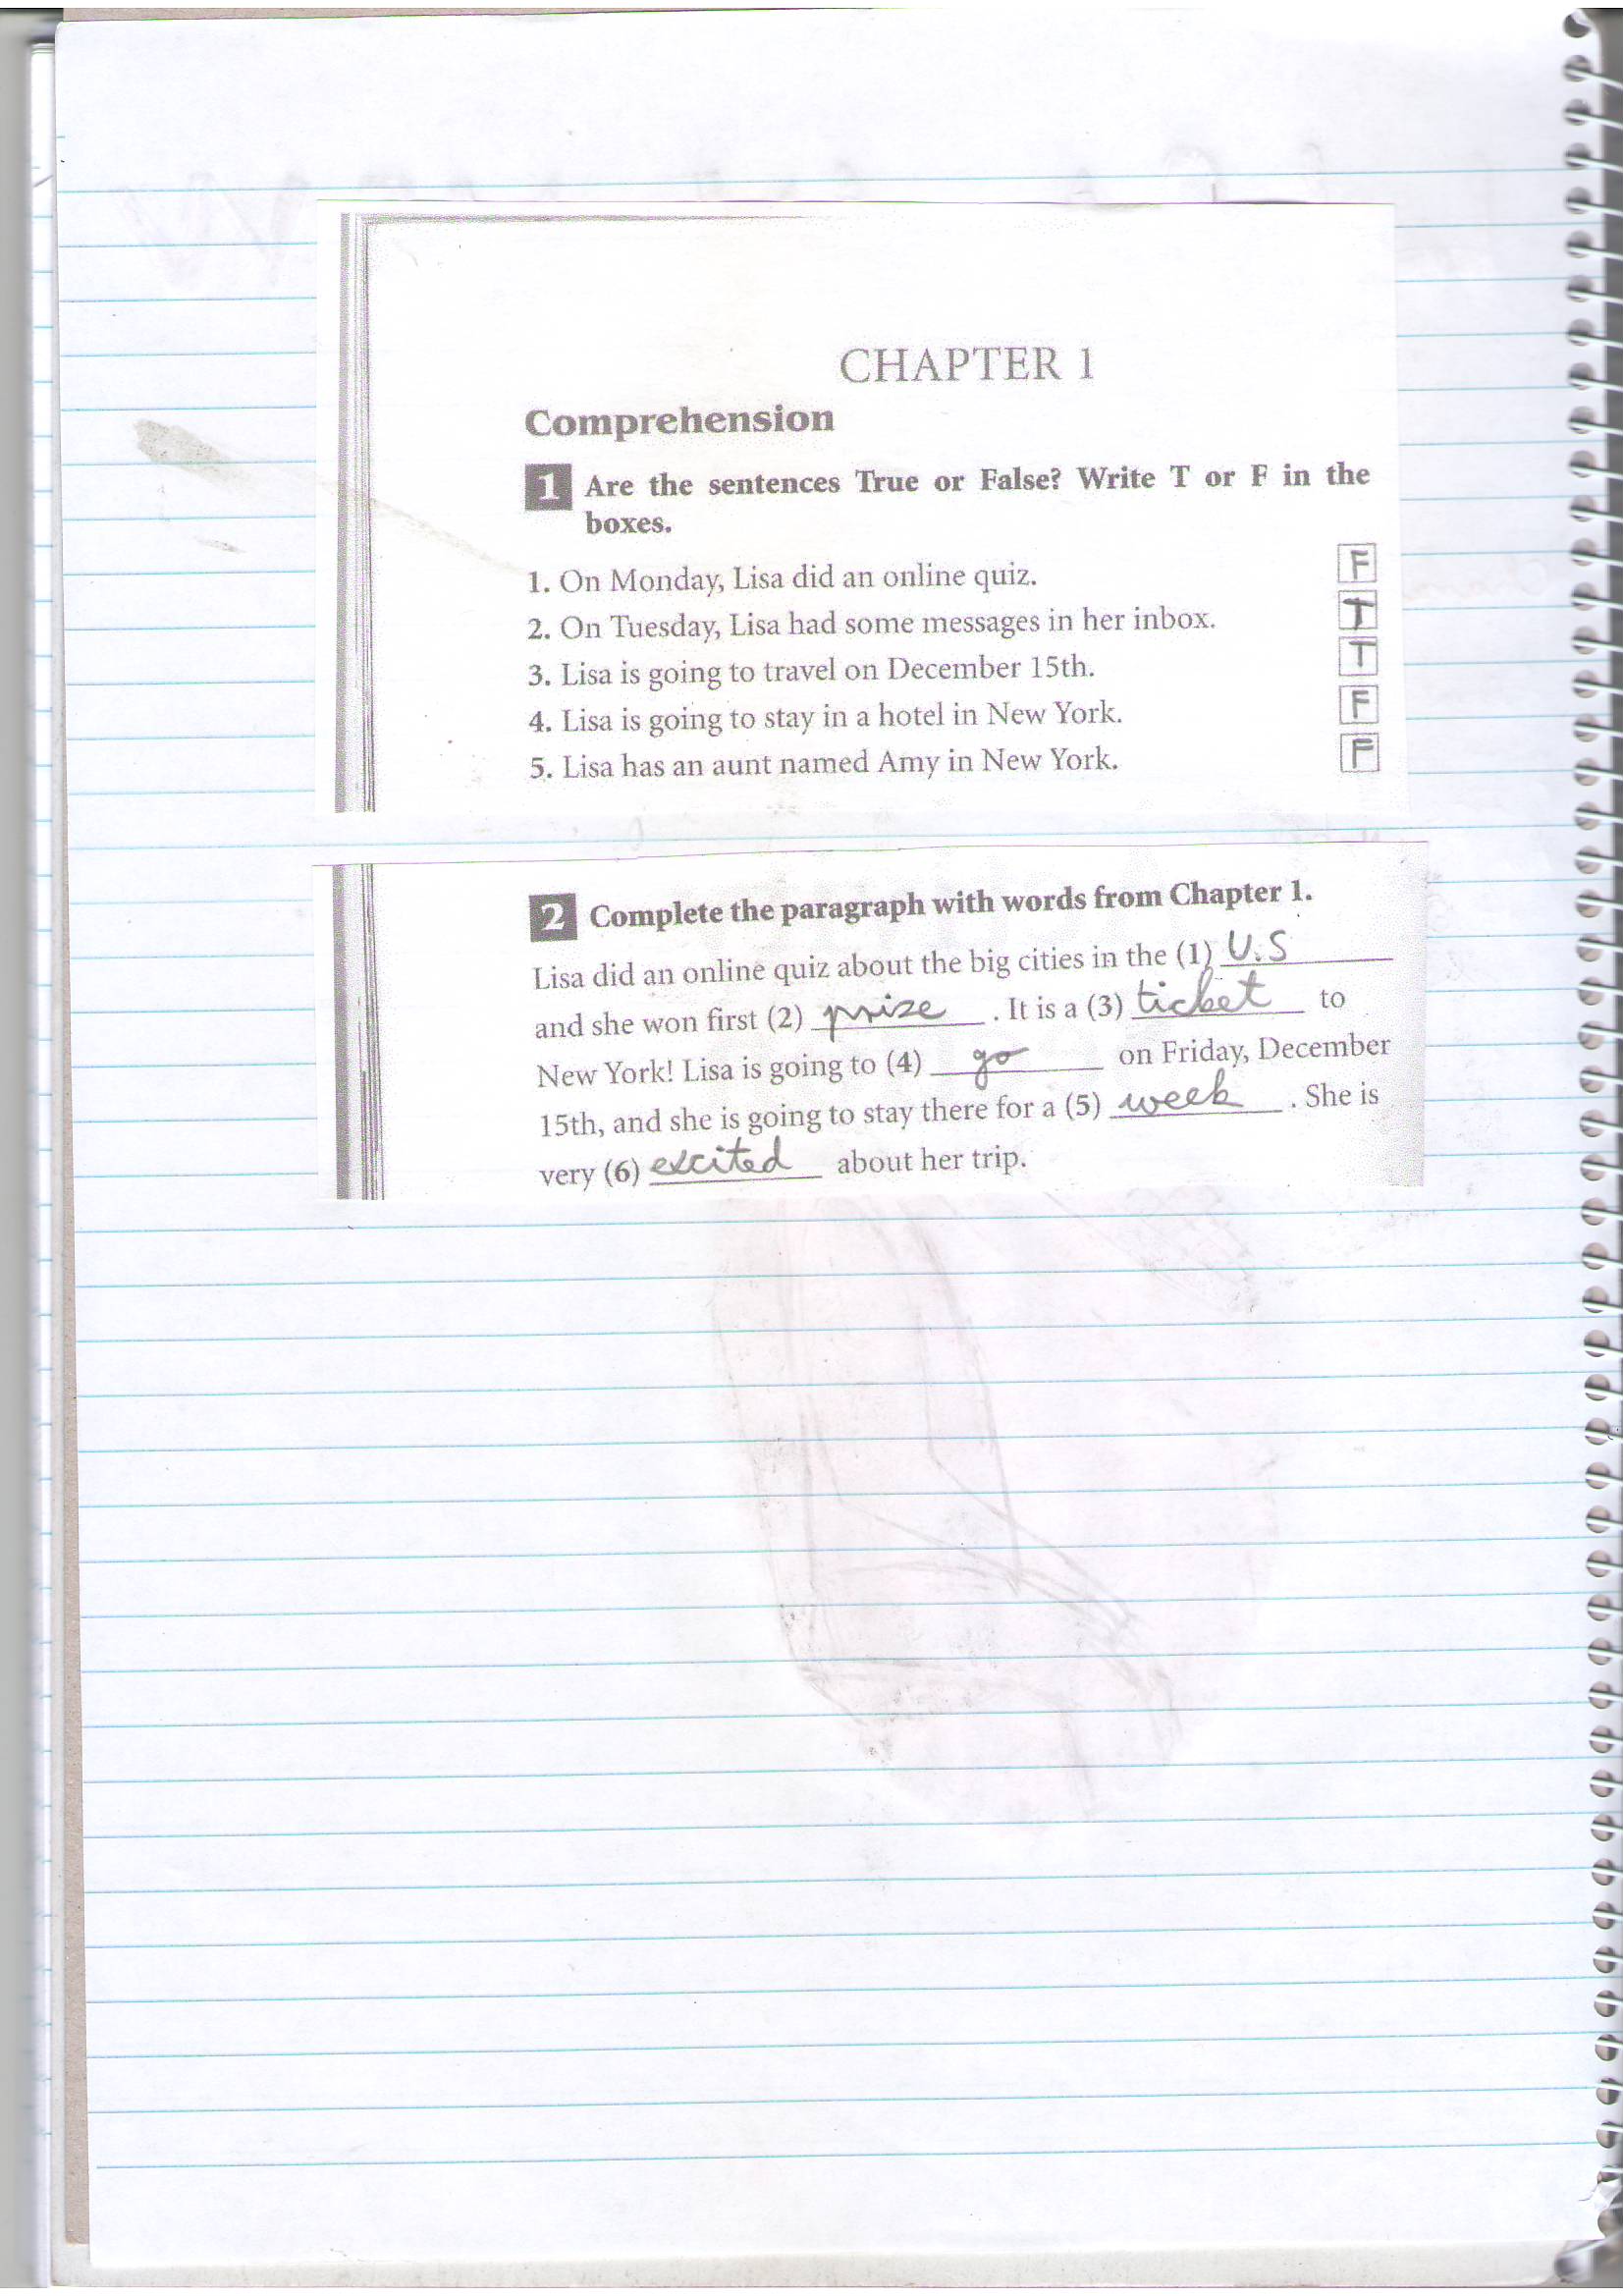 CHAPTER 1
Comprehension
1 Are the sentences True or False? Write T or F in the
boxes.
1. On Monday, Lisa did an online quiz. F
2. On Tuesday, Lisa had some messages in her inbox. T
3. Lisa is going to travel on December 15th. T
4. Lisa is going to stay in a hotel in New York. F
5. Lisa has an aunt named Amy in New York. F
2 Complete the paragraph with words from Chapter 1.
Lisa did an online quiz about the big cities in the (1) U.S
and she won first (2) prize . It is a (3) ticket to
New York! Lisa is going to (4) go on Friday, December
15th, and she is going to stay there for a (5) week . She is
very (6) excited about her trip.